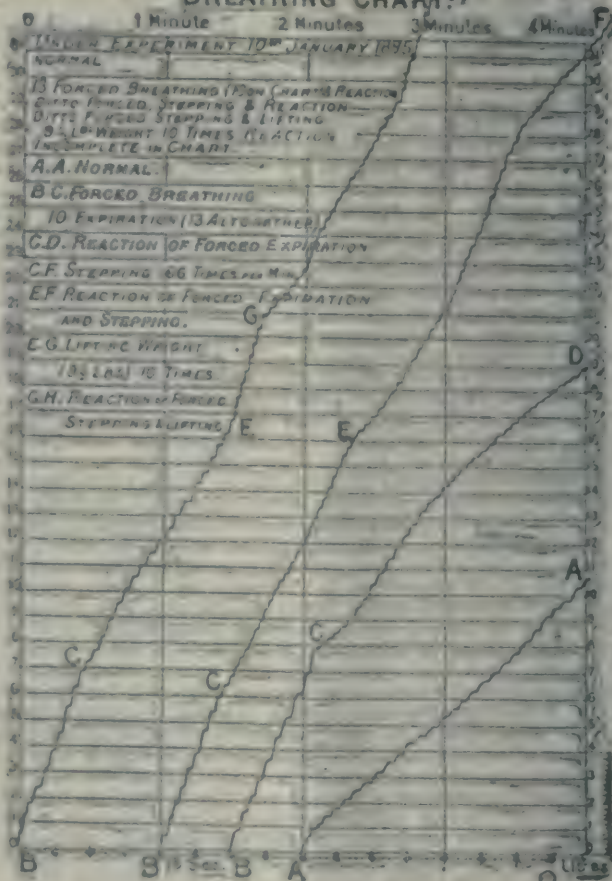 BREATHING CHART.
0 1 Minute 2 Minutes 3 Minutes 4 Minutes F
UNDER EXPERIMENT 10TH JANUARY 1895
NORMAL
13 FORCED BREATHING (10 ON CHART) & REACTION
DITTO FORCED, STEPPING & REACTION
DITTO FORCED STEPPING & LIFTING
WEIGHT 10 TIMES REACTION
INCOMPLETE IN CHART
A.A. NORMAL.
B C. FORCED BREATHING
10 EXPIRATION (13 ALTOGETHER)
C.D. REACTION OF FORCED EXPIRATION
C.F. STEPPING 66 TIMES PER MIN
EF REACTION OF FORCED EXPIRATION
AND STEPPING.
E G. LIFTING WEIGHT
10 TIMES
G.H. REACTION OF FORCED
STEPPING & LIFTING
G
D
E
E
A
C
C
C
B B 15 Sec. B A